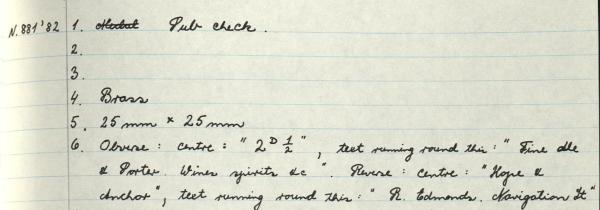 N.881'82 1. Market Pub check.
2.
3.
4. Brass
5. 25 mm × 25 mm
6. Obverse: centre: " 2ᴰ ½ ", text running round this: " Fine ale
& Porter. Wines spirits &c ". Reverse: centre: " Hope &
Anchor", text running round this: " R. Edmonds. Navigation St"